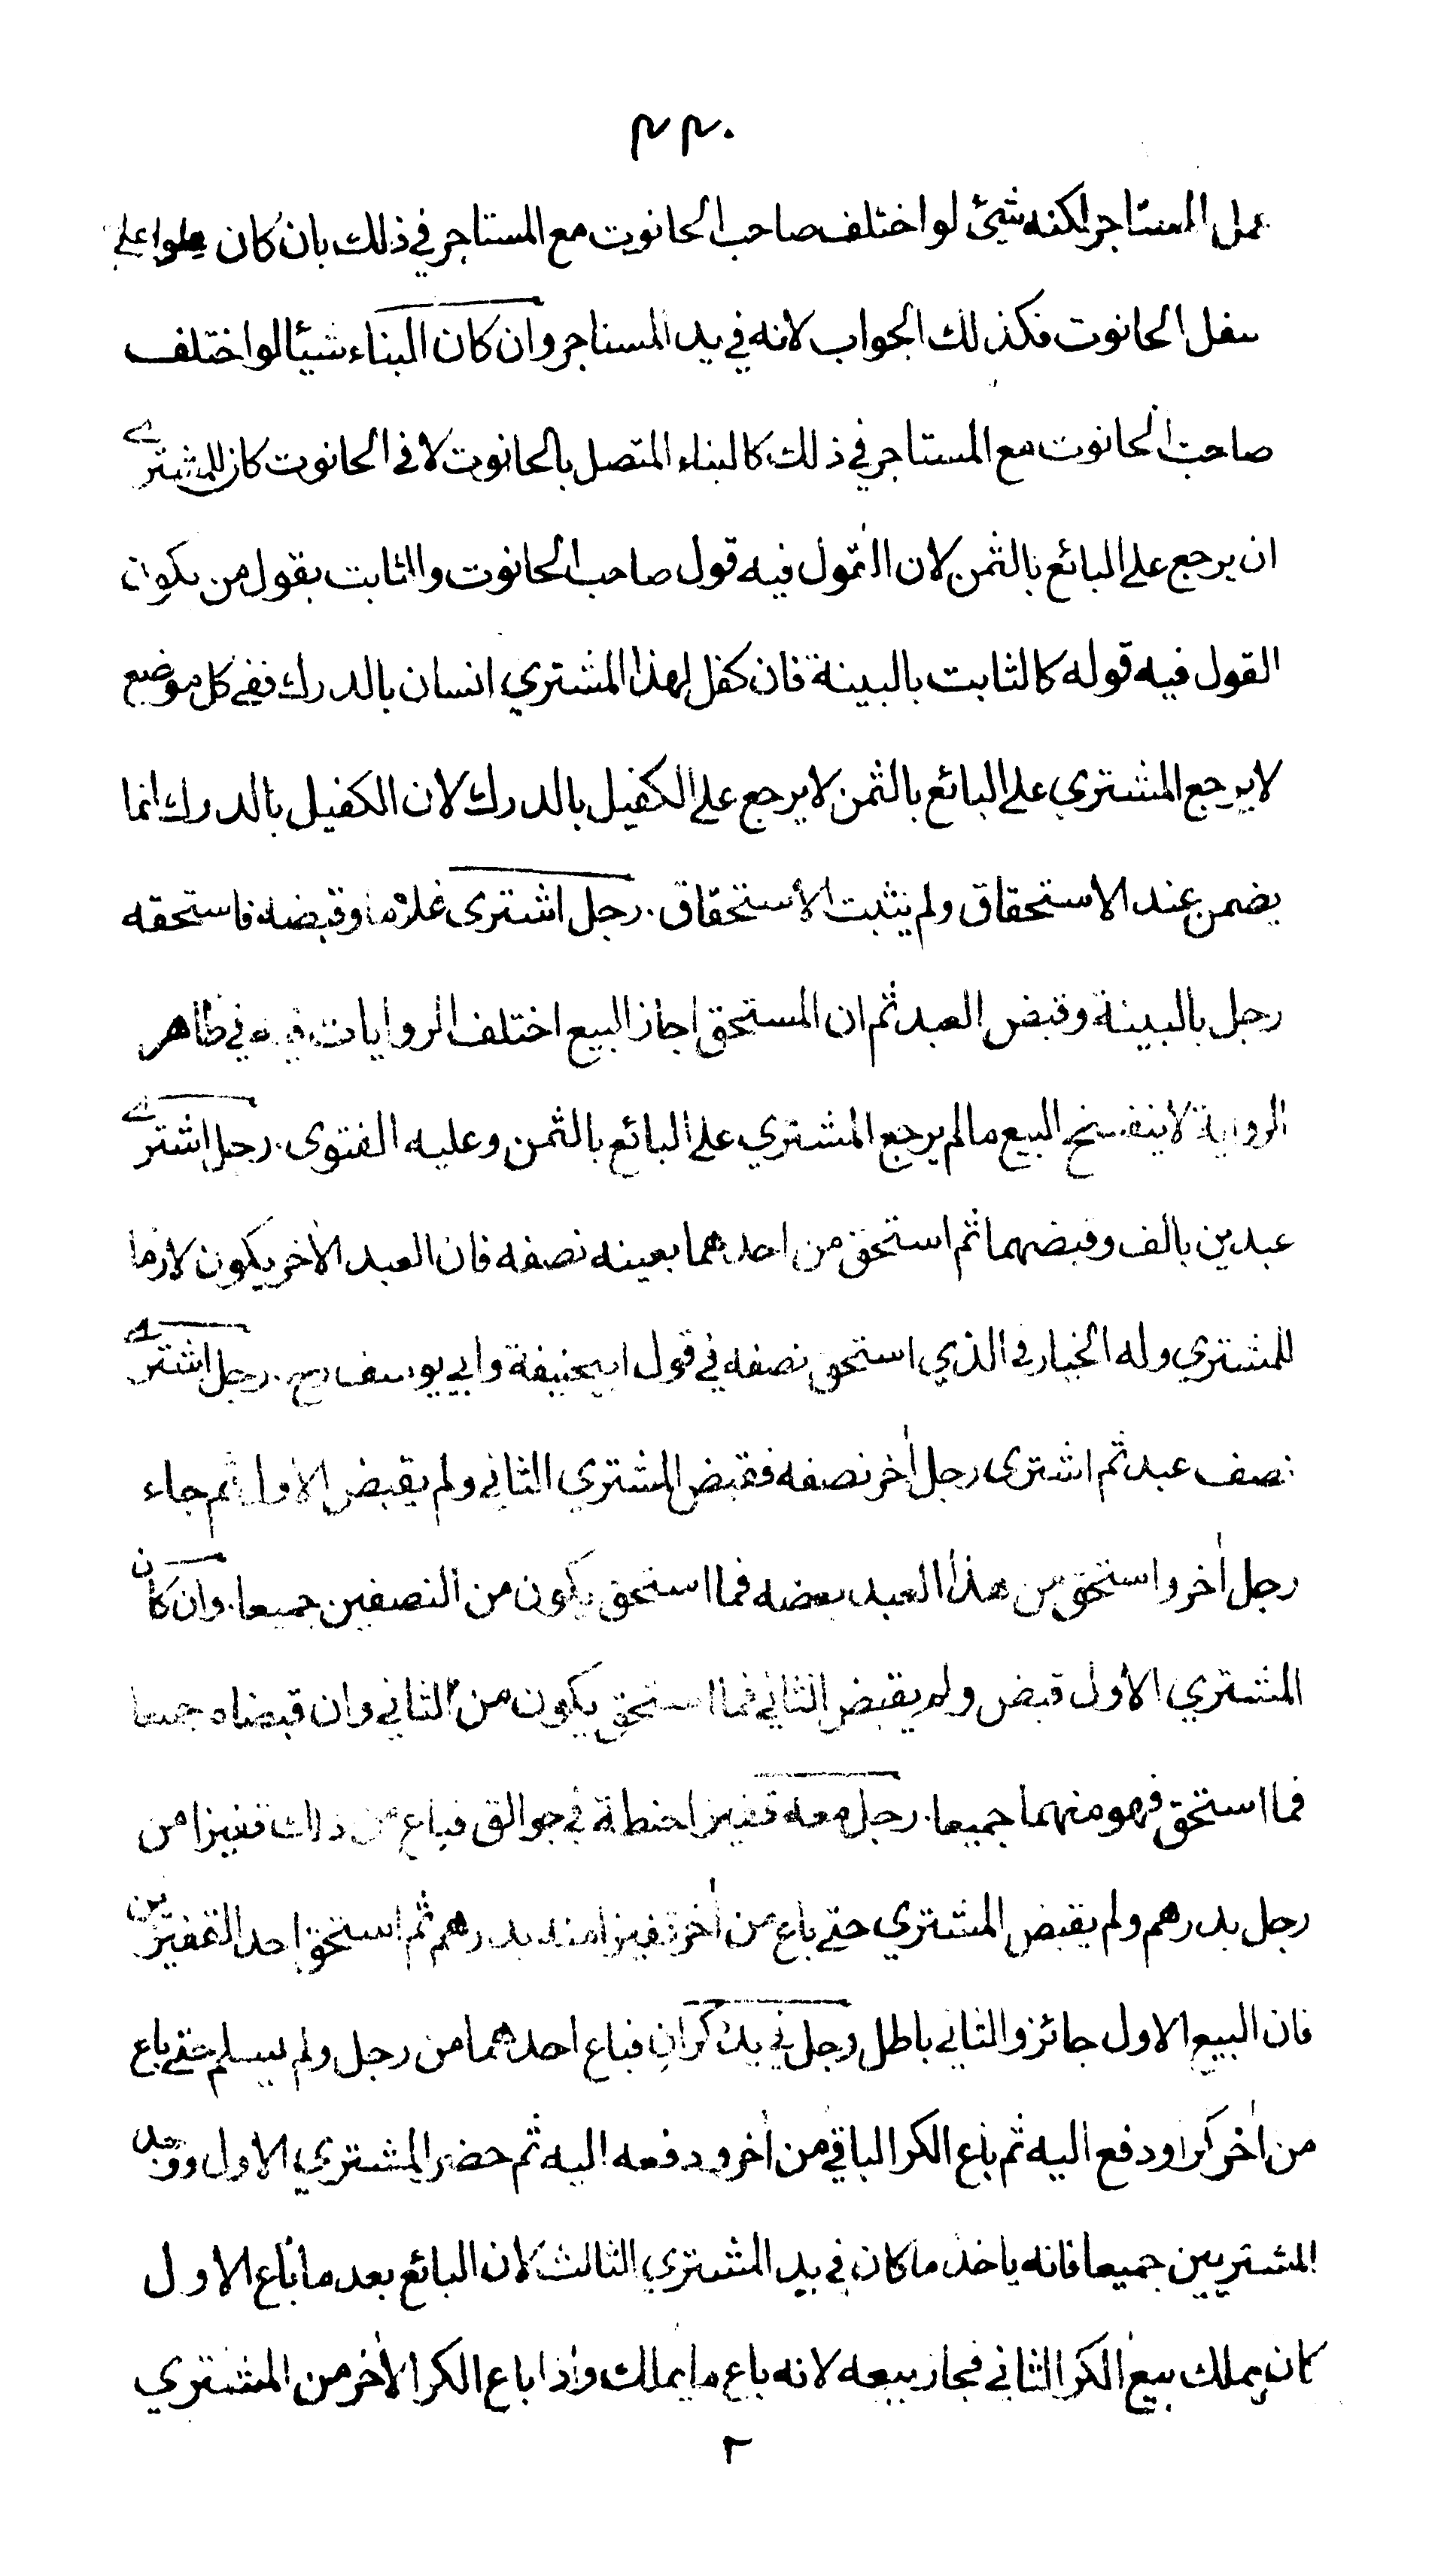 ٢٢٠
عمل المستاجر لكنه شيئ لو اختلف صاحب الحانوت مع المستاجر في ذلك بان كان علوا على
سفل الحانوت فكذلك الجواب لانه في يد المستاجر وان كان البناء شيئا لو اختلف
صاحب الحانوت مع المستاجر في ذلك كالبناء المتصل بالحانوت لا في الحانوت كان للمشتري
ان يرجع على البائع بالثمن لان القول فيه قول صاحب الحانوت والثابت بقول من يكون
القول فيه قوله كالثابت بالبينة فان كفل لهذا المشتري انسان بالدرك ففي كل موضع
لا يرجع المشتري على البائع بالثمن لا يرجع على الكفيل بالدرك لان الكفيل بالدرك انما
يضمن عند الاستحقاق ولم يثبت الاستحقاق . رجل اشترى غلاما وقبضه فاستحقه
رجل بالبينة وقبض العبد ثم ان المستحق اجاز البيع اختلف الروايات فيه في ظاهر
الرواية لا ينفسخ البيع مالم يرجع المشتري على البائع بالثمن وعليه الفتوى . رجل اشتري
عبدين بالف وقبضهما ثم استحق من احدهما بعينه نصفه فان العبد الأخر يكون لازما
للمشتري وله الخيار في الذي استحق نصفه في قول ابيحنيفة وابي يوسف رح . رجل اشتري
نصف عبد ثم اشترى رجل أخر نصفه فقبض المشتري الثاني ولم يقبض الاول ثم جاء
رجل أخر واستحق من هذا العبد بعضه فما استحق يكون من النصفين جميعا . وان كان
المشتري الاول قبض ولم يقبض الثاني فما استحق يكون من الثاني وان قبضاه جميعا
فما استحق فهو منهما جميعا . رجل معه قفيزا حنطة في جوالق فباع من ذلك قفيزا من
رجل بدرهم ولم يقبض المشتري حتى باع من أخر قفيزا منه بدرهم ثم استحق احد القفيزين
فان البيع الاول جائز والثاني باطل رجل في يده كران فباع احدهما من رجل ولم يسلم حتى باع
من أخر كرا ودفع اليه ثم باع الكر الباقي من أخر ودفعه اليه ثم حضر المشتري الاول ووجد
المشتريين جميعا فانه ياخذ ما كان في يد المشتري الثالث لان البائع بعد ما باع الاول
كان يملك بيع الكر الثاني فجاز بيعه لانه باع ما يملك واذا باع الكر الأخر من المشتري
٢